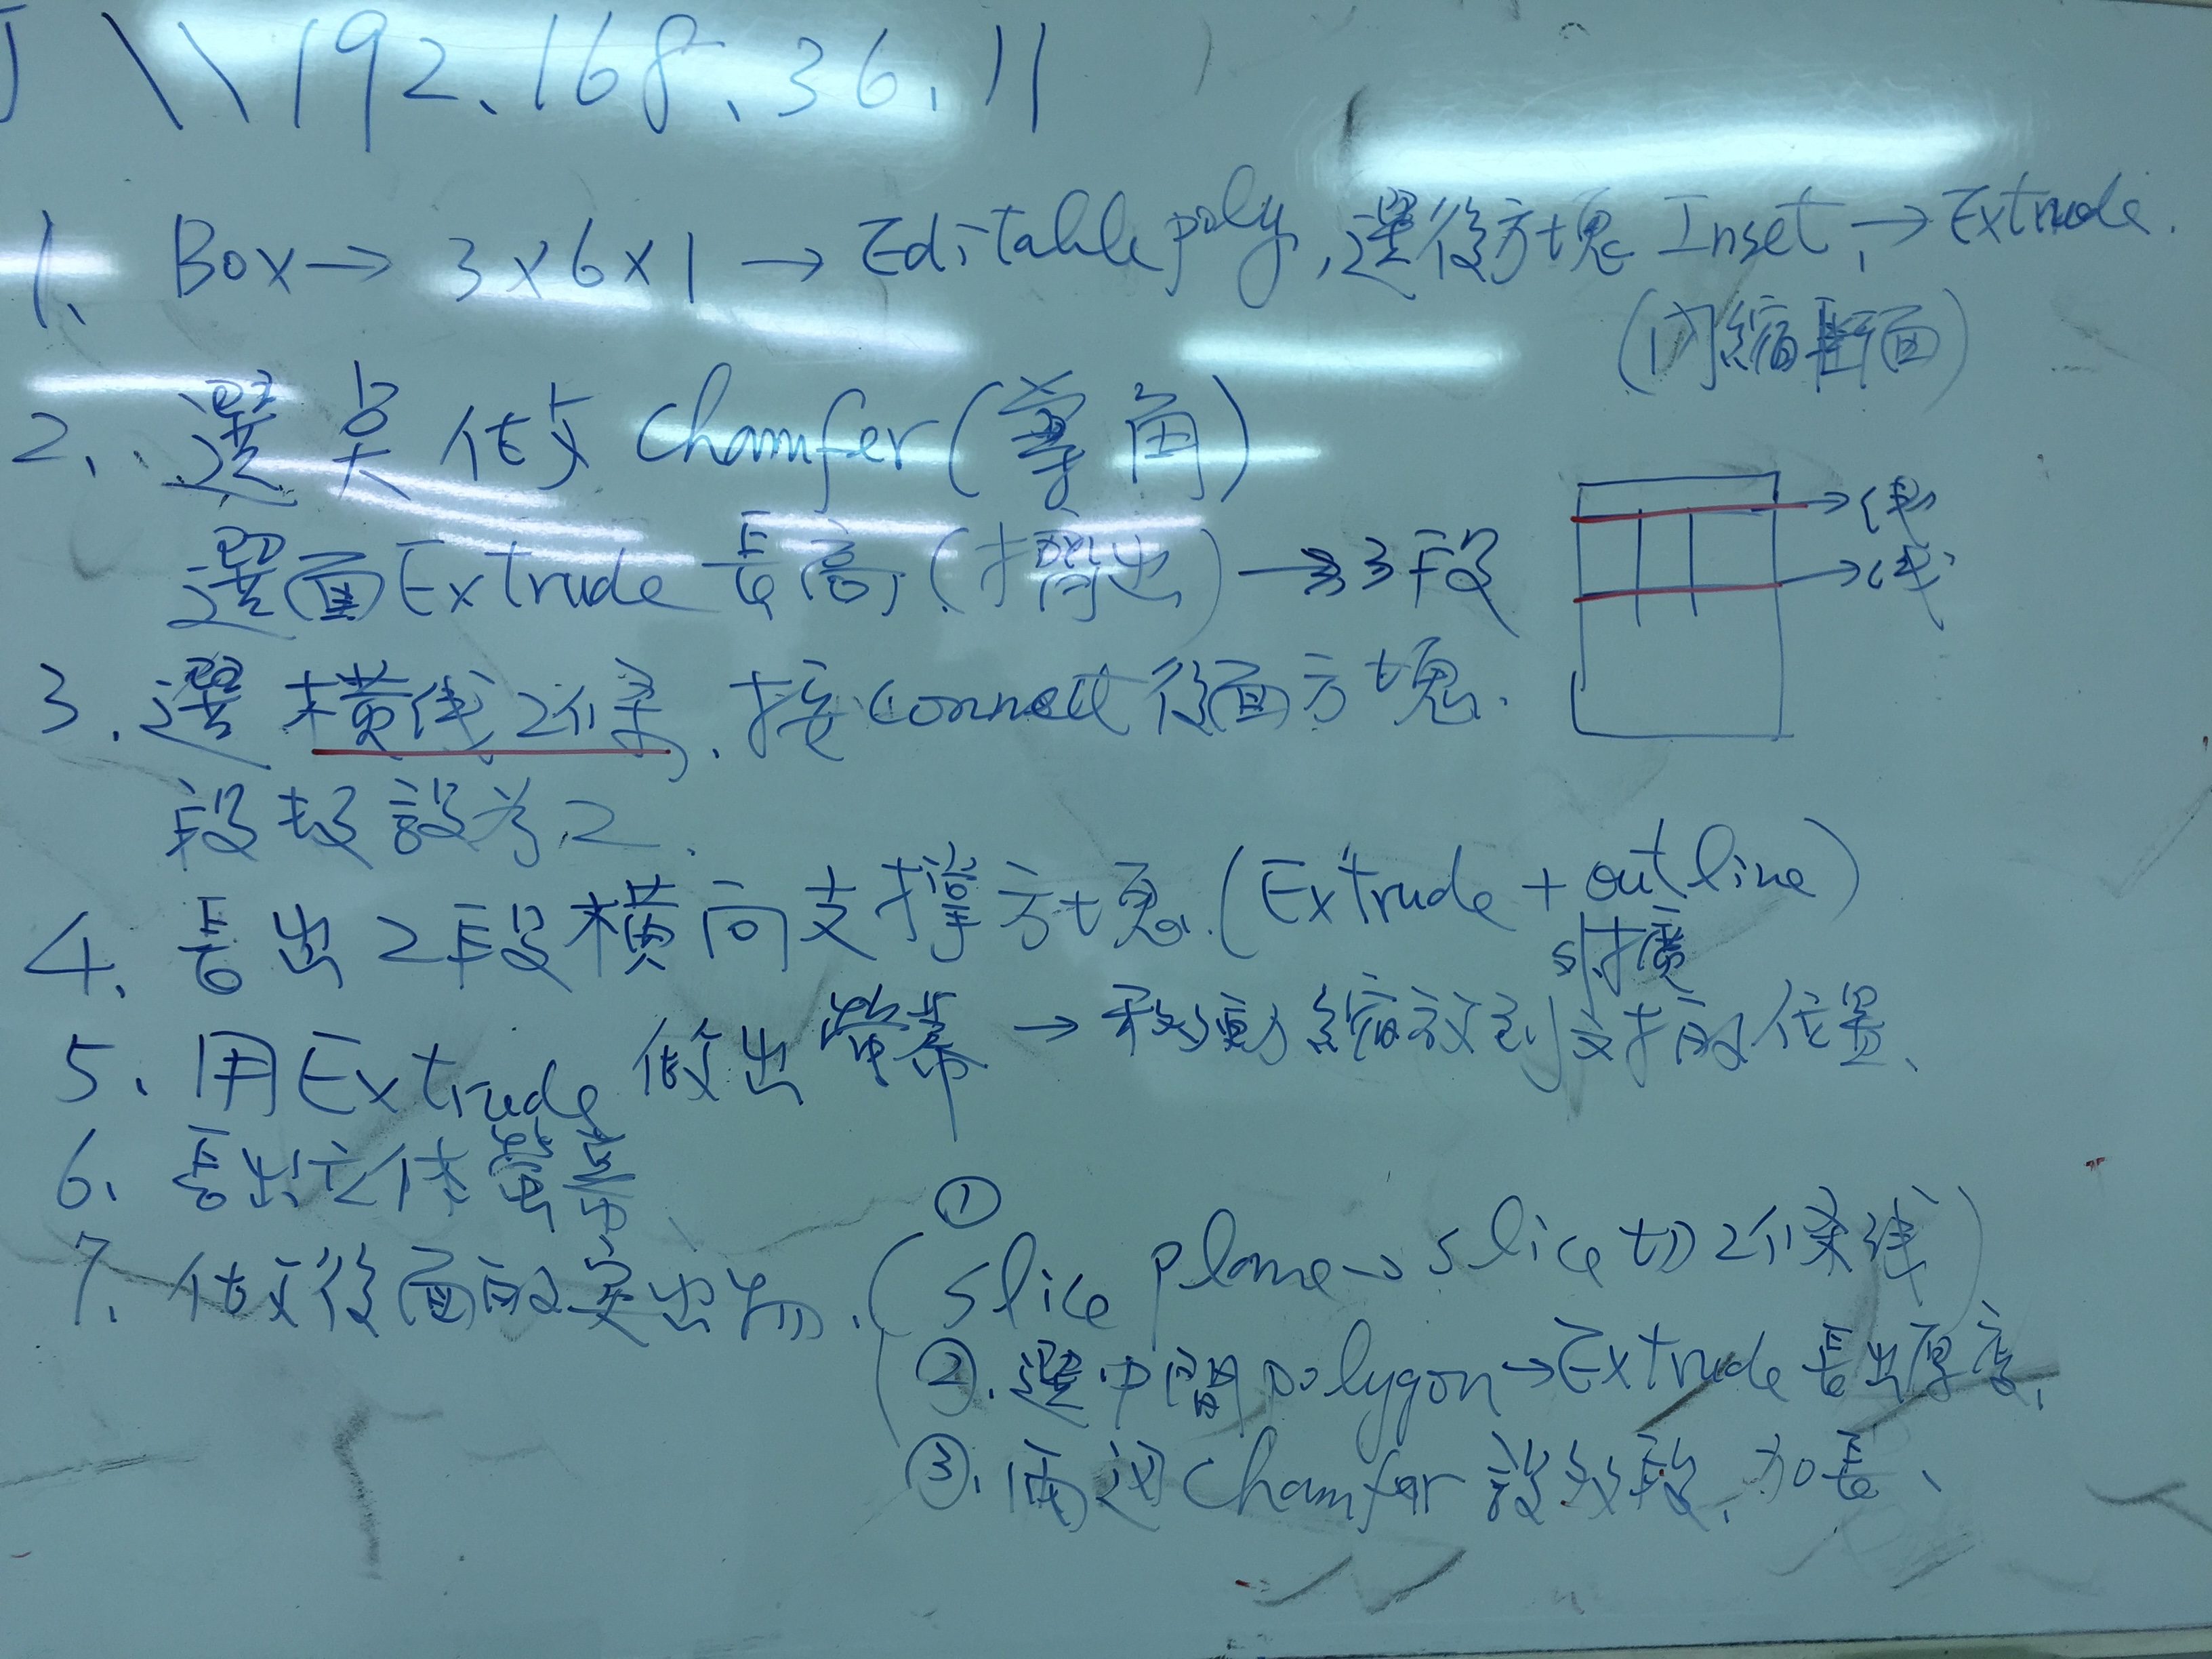 \\192.168.36.11
1. Box → 3x6x1 → Editable poly, 選後方塊 Inset, → Extrude.
(內縮斷面)
2. 選点做 chamfer(導角)
選面Extrude長高(擠出) → 3段
线
线
3. 選橫线2條, 接connect後面方塊.
段 設為2.
4. 長出2段橫向支撐方塊.(Extrude + outline)
外擴
5. 用Extrude 做出螢幕 → 移動縮放到 的位置.
6. 長出立体螢幕.
7. 做後面的突出物.
① (slice plane → slice切2條线)
②. 選中間polygon→Extrude 長出厚度.
③. 兩邊chamfer 設 段, 加長.